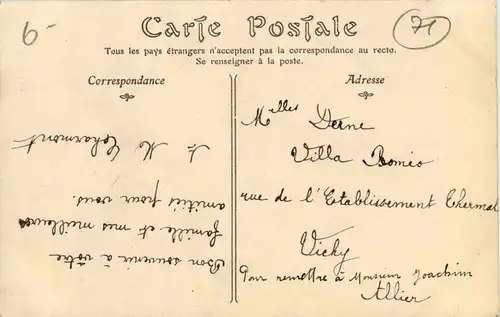 6-
71
Carte Postale
Tous les pays étrangers n'acceptent pas la correspondance au recto.
Se renseigner à la poste.
Correspondance
Adresse
Bon souvenir à vôtre
famille et mes meilleures
amitiés pour vous.
Charmont
Melles Derne
Villa Roméo
rue de l'Etablissement Thermal
Vichy
Pour remettre à Monsieur Joachim
Allier